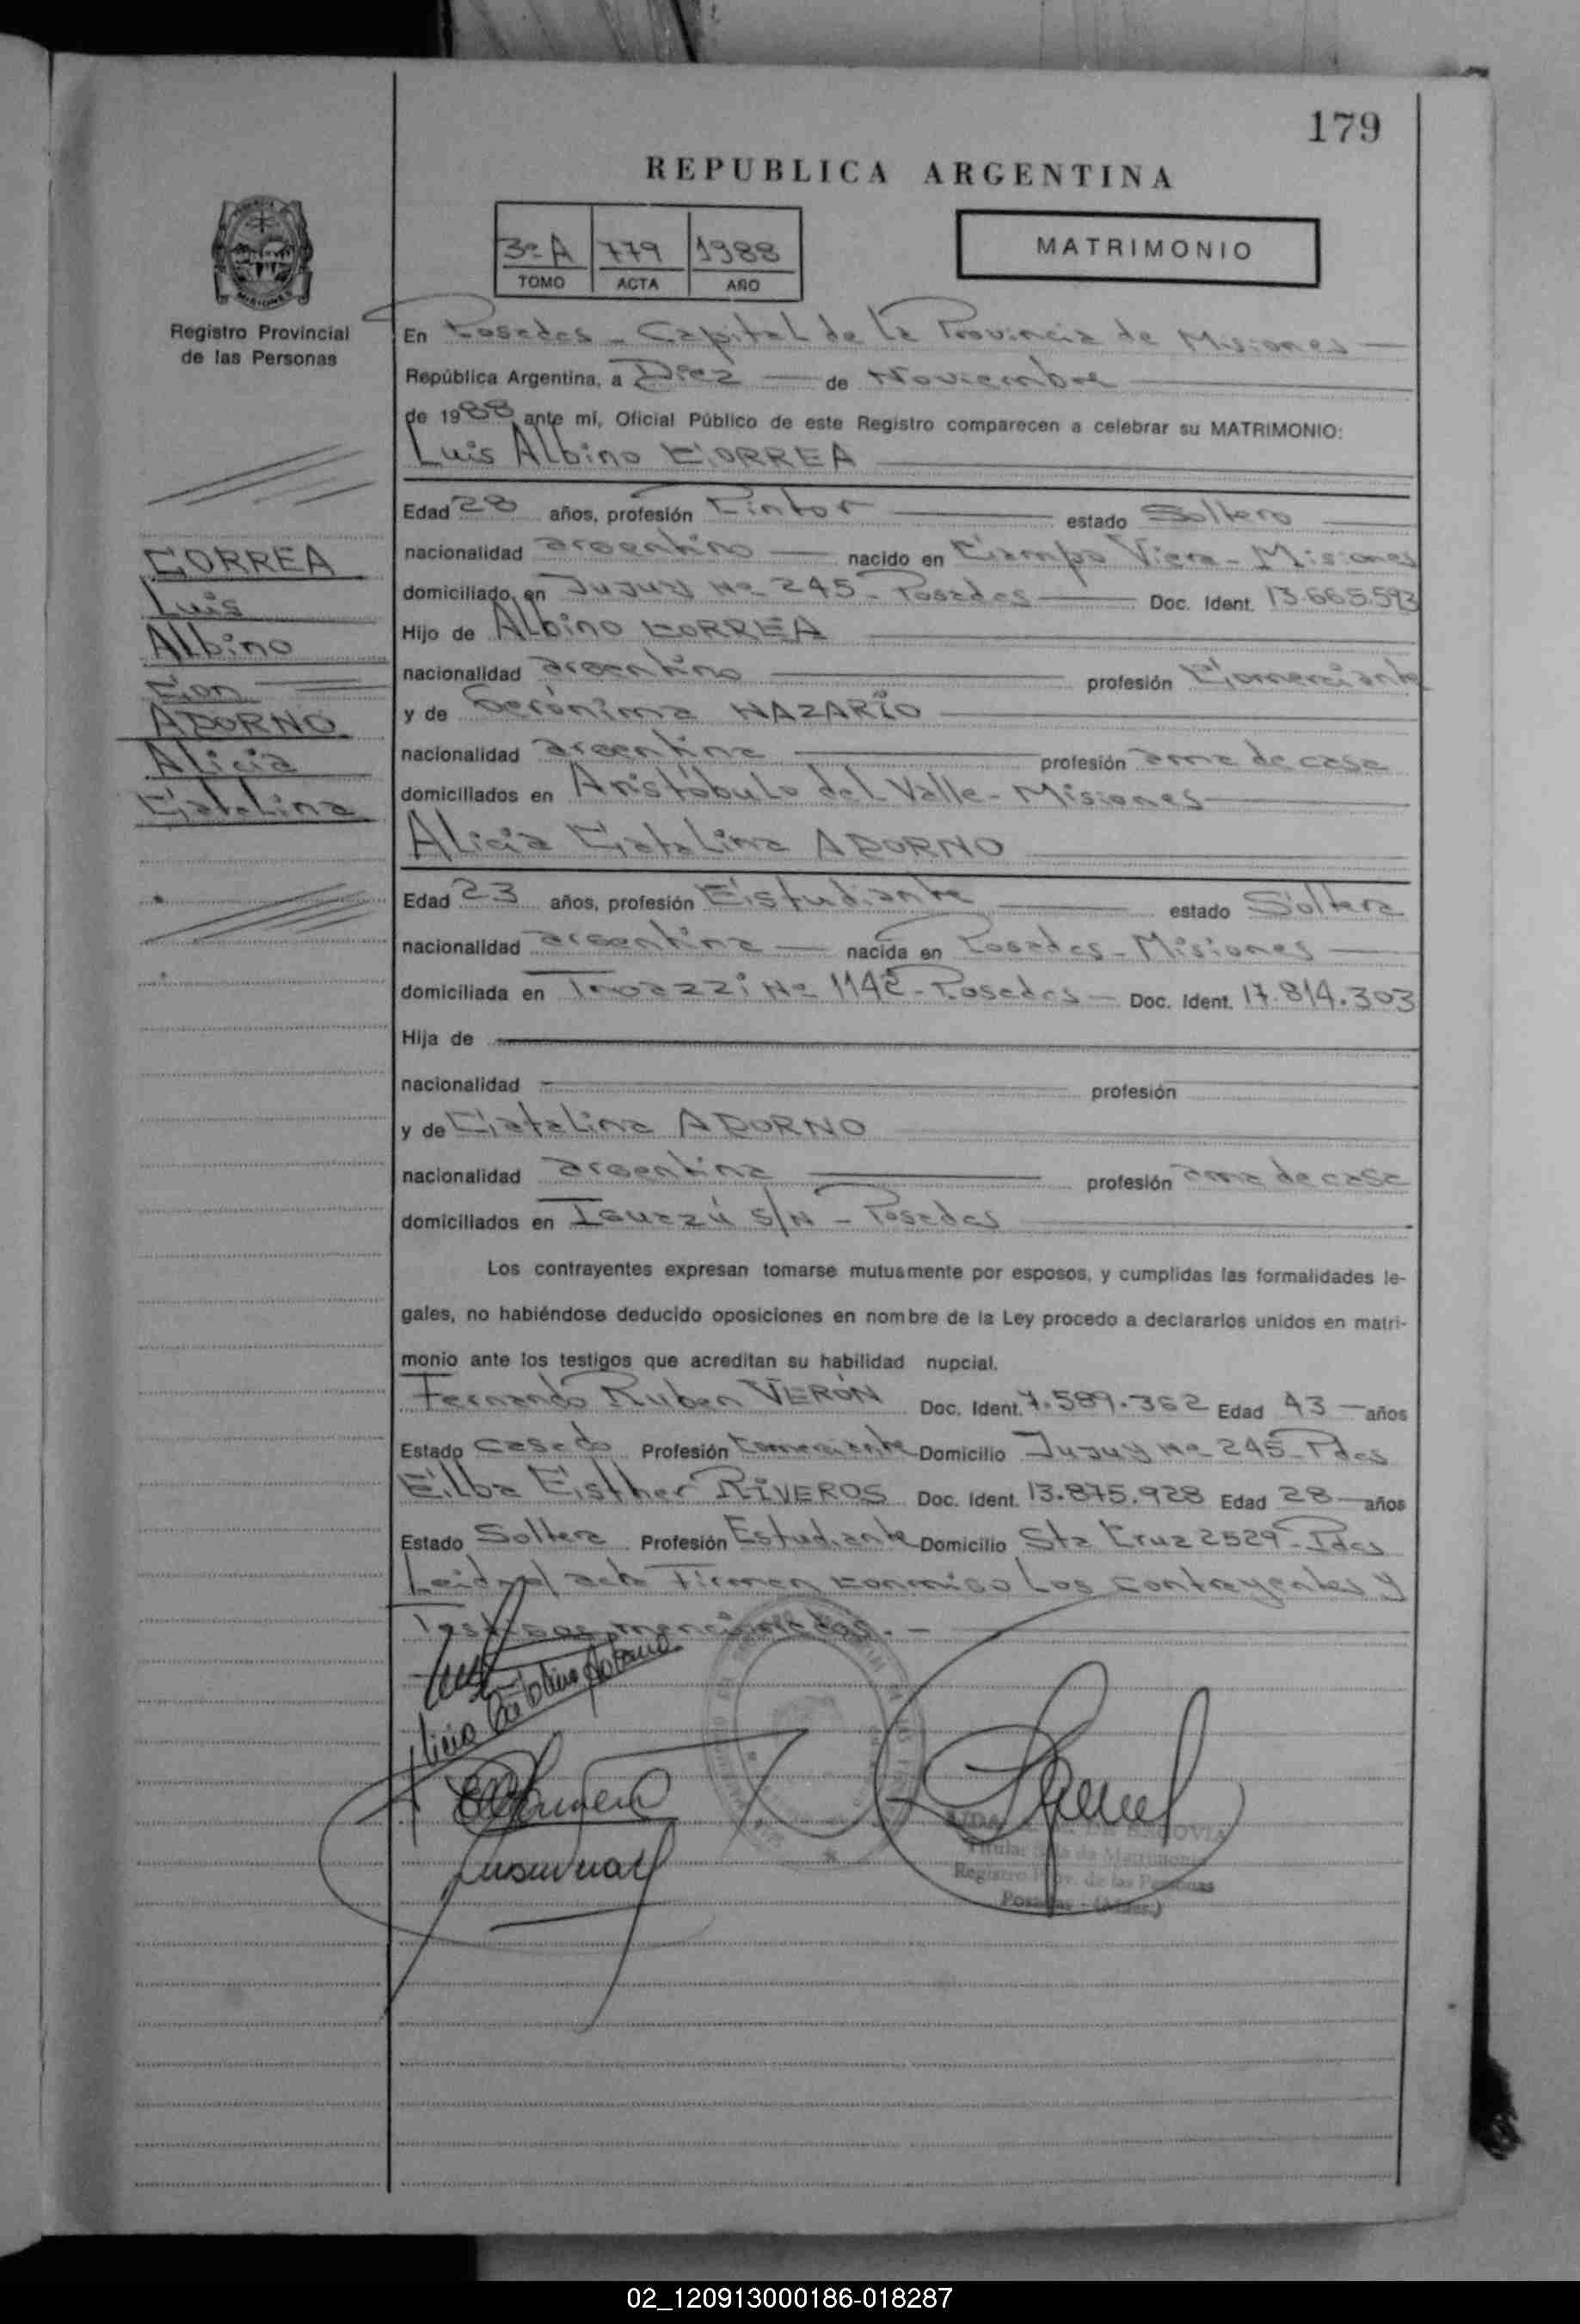 179
REPUBLICA ARGENTINA
3º A 779 1988
TOMO ACTA AÑO
MATRIMONIO
MISIONES
Registro Provincial
de las Personas
En Posadas - Capital de la Provincia de Misiones
República Argentina, a Diez de Noviembre
de 1988 ante mí, Oficial Público de este Registro comparecen a celebrar su MATRIMONIO:
Luis Albino CORREA
Edad 28 años, profesión Pintor estado Soltero
nacionalidad argentino nacido en Campo Viera - Misiones
domiciliado en Jujuy Nº 245 - Posadas Doc. Ident. 13.665.593
Hijo de Albino CORREA
nacionalidad argentino profesión Comerciante
y de Gerónima NAZARIO
nacionalidad argentina profesión ama de casa
domiciliados en Aristóbulo del Valle - Misiones
Alicia Catalina ADORNO
Edad 23 años, profesión Estudiante estado Soltera
nacionalidad argentina nacida en Posadas - Misiones
domiciliada en Nº Posadas Doc. Ident. 17.814.303
Hija de
nacionalidad profesión
y de Catalina ADORNO
nacionalidad argentina profesión ama de casa
domiciliados en Iguazú S/N - Posadas
Los contrayentes expresan tomarse mutuamente por esposos, y cumplidas las formalidades le-
gales, no habiéndose deducido oposiciones en nombre de la Ley procedo a declararlos unidos en matri-
monio ante los testigos que acreditan su habilidad nupcial.
Fernando Ruben VERÓN Doc. Ident. 7.589.362 Edad 43 años
Estado Casado Profesión Comerciante Domicilio Jujuy Nº 245 - Pdas
Elba Esther RIVEROS Doc. Ident. 13.875.928 Edad 28 años
Estado Soltera Profesión Estudiante Domicilio Sta Cruz 2529 - Pdas
Leida el acta Firman conmigo los contrayentes y
Testigos mencionados. -
Alicia Catalina Adorno
DE SEGOVIA
Titular de Matrimonio
Registro Prov. de las Personas
Posadas - (Mnes.)
CORREA
Luis
Albino
Con
ADORNO
Alicia
Catalina
02_120913000186-018287